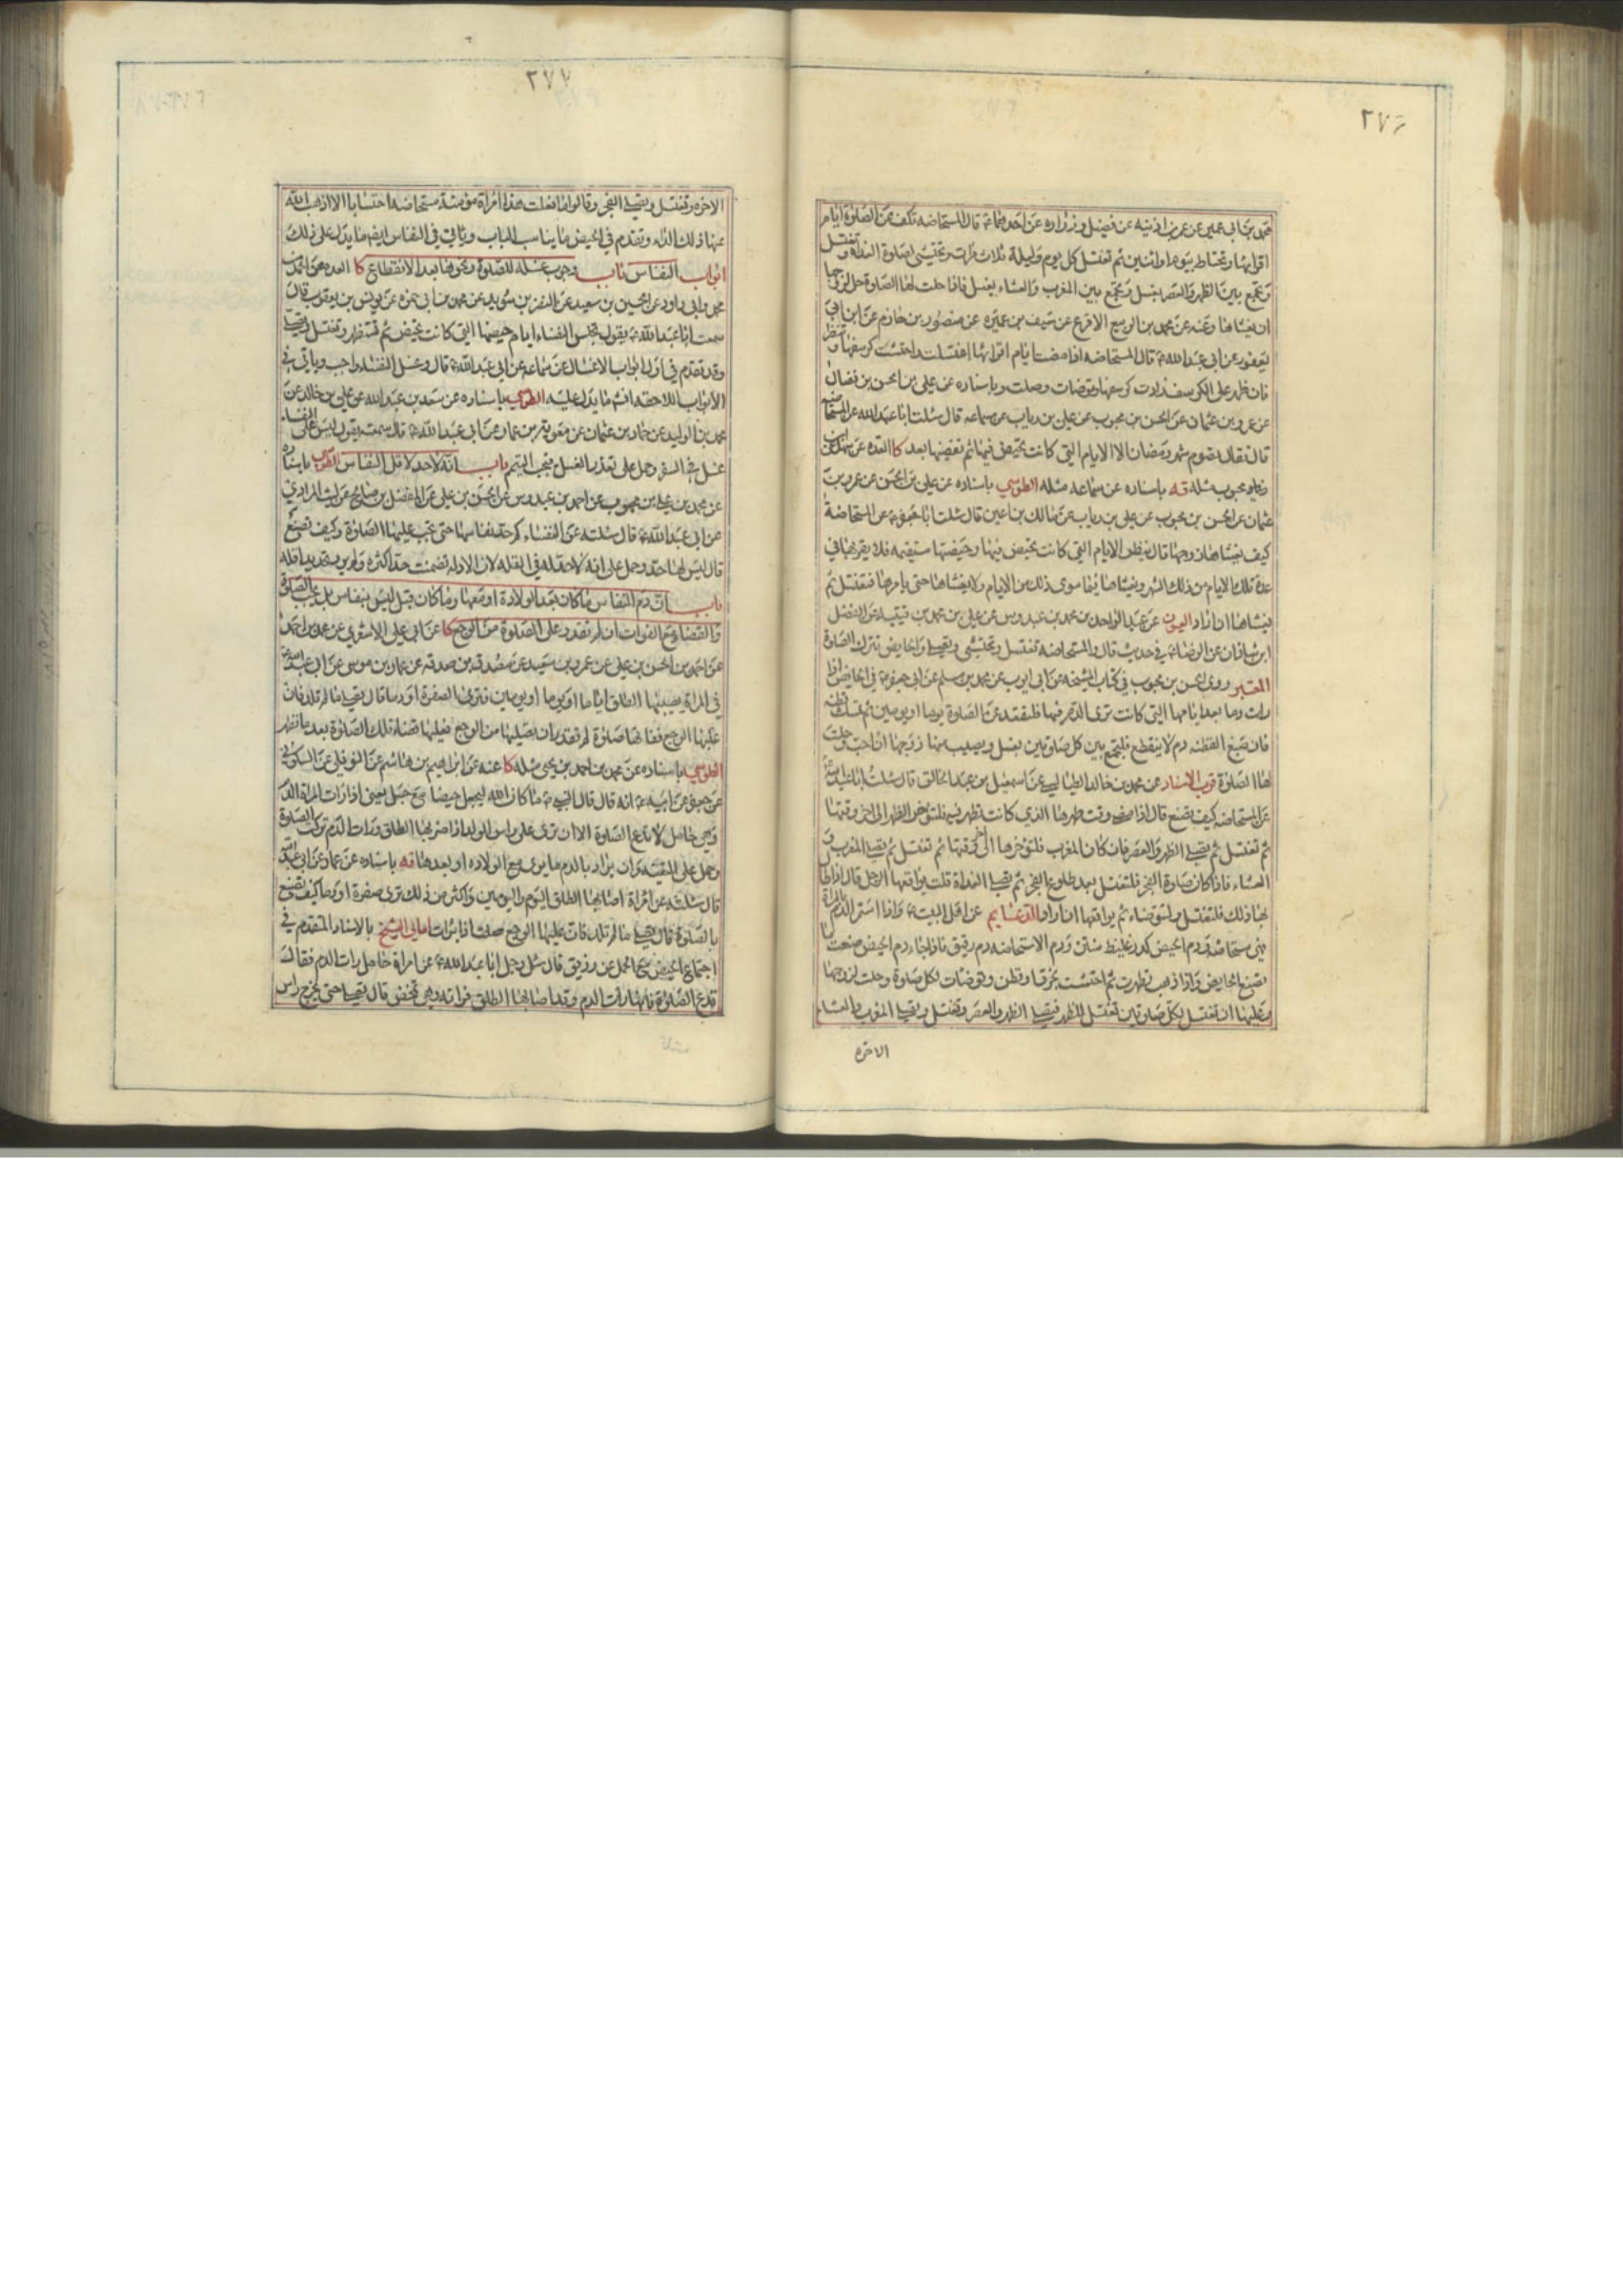 ٢٧٦
محمد بن ابى عمير عن عمر بن اذنيه عن فضيل وزراره عن احدهماء قال المستحاضه تكف عن الصلوة ايام
اقرائها وتحتاط بيوم او اثنين ثم تغتسل كل يوم وليلة ثلاث مرات وتحتشى لصلوة الغداة وتغتسل
وتجمع بين الظهر والعصر بغسل وتجمع بين المغرب والعشاء بغسل فاذا حلت لها الصلوة حل لزوجها
ان يغشاها وعنه عن محمد بن الربيع الاقرع عن سيف بن عميره عن منصور بن حازم عن ابن ابى
يعفور عن ابى عبد الله ع قال المستحاضه اذا مضت ايام اقرائها اغتسلت واحتشت كرسفها وتنظر
فان ظهر على الكرسف زادت كرسفها وتوضات وصلت وباسناده عن على بن الحسن بن فضال
عن عمرو بن عثمان عن الحسن بن محبوب عن على بن رياب عن سماعه قال سئلت ابا عبد الله عن المستحاضه
قال فقال تصوم شهر رمضان الا الايام التى كانت تحيض فيها ثم تقضيها بعد كا العده عن سهل عن
محبوب مثله قه باسناده عن سماعه مثله الطوسي باسناده عن على بن الحسن عن عمرو بن
عثمان عن الحسن بن محبوب عن على بن رياب عن مالك بن اعين قال سئلت ابا جعفر ع عن المستحاضة
كيف يغشاها زوجها قال ينظر الايام التى كانت تحيض فيها وحيضتها مستقيمه فلا يقربها فى
عدة تلك الايام من ذلك الشهر ويغشاها فيما سوى ذلك من الايام ولا يغشاها حتى يامرها فتغتسل ثم
يغشاها ان اراد العيون عن عبد الواحد بن محمد بن عبدوس عن على بن محمد بن قتيبه عن الفضل
ابن شاذان عن الرضا ع فى حديث قال والمستحاضه تغتسل وتحتشى وتصلى والحايض تترك الصلوة
المعتبر روى الحسن بن محبوب فى كتاب المشيخه عن ابى ايوب عن محمد بن مسلم عن ابى جعفر ع فى الحايض اذا
رات دما بعد ايامها التى كانت ترى الدم فيها فلتقعد عن الصلوة يوما او يومين ثم تمسك قطنه
فان صبغ القطنه دم لا ينقطع فلتجمع بين كل صلوتين بغسل ويصيب منها زوجها ان احب وحلت
لها الصلوة قرب الاسناد عن محمد بن خالد الطيالسى عن اسمعيل بن عبد الخالق قال سئلت ابا عبد الله ع
عن المستحاضه كيف تصنع قال اذا مضى وقت طهرها الذى كانت تطهر فيه فلتؤخر الظهر الى اخر وقتها
ثم تغتسل ثم تصلى الظهر والعصر فان كان المغرب فلتؤخرها الى اخر وقتها ثم تغتسل ثم تصلى المغرب و
العشاء فاذا كان صلوة الفجر فلتغتسل بعد طلوع الفجر ثم تصلى الغداة قلت يواقعها الرجل قال اذا طال
بها ذلك فلتغتسل ولتتوضاء ثم يواقعها ان اراد الدعائم عن اهل البيت ع واذا استمر الدم بالمراة
فهى مستحاضه ودم الحيض كدر غليظ منتن ودم الاستحاضه دم رقيق فاذا جاء دم الحيض صنعت ما
تصنع الحايض واذا ذهب تطهرت ثم احتشت بخرق او قطن وتوضات لكل صلوة وحلت لزوجها
وعليها ان تغتسل لكل صلوتين تغتسل للظهر فتصلى الظهر والعصر وتغتسل وتصلى المغرب والعشاء
الاخره
٢٧٧
الاخره وتغتسل وتصلى الفجر وقالوا ما فعلت هذا امراة مؤمنة مستحاضه احتسابا الا اذهب الله
عنها ذلك الداء وتقدم فى الحيض ما يناسب الباب وياتى فى النفاس ايضا ما يدل على ذلك
ابواب النفاس باب وجوب غسله للصلوة ونحوها بعد الانقطاع كا العده عن احمد بن
محمد وابى داود عن الحسين بن سعيد عن النضر بن سويد عن محمد بن ابى حمزه عن يونس بن يعقوب قال
سمعت ابا عبد الله ع يقول تجلس النفساء ايام حيضها التى كانت تحيض ثم تستظهر وتغتسل وتصلى
وقد تقدم فى اول ابواب الاغسال عن سماعه عن ابى عبد الله ع قال وغسل النفساء واجب وياتى فى
الابواب اللاحقه انشا ما يدل عليه الطوسي باسناده عن سعد بن عبد الله عن على بن خالد عن
محمد بن الوليد عن حماد بن عثمان عن معويه بن عمار عن ابى عبد الله ع قال سمعته يقول ليس على النفساء
غسل فى السفر وحمل على تعذر الغسل فيجب التيمم باب انه لا حد لاقل النفاس الطوسي باسناده
عن محمد بن على بن محبوب عن احمد بن عبدوس عن الحسن بن على عن المفضل بن صالح عن ليث المرادى
عن ابى عبد الله ع قال سئلته عن النفساء كم حد نفاسها حتى تجب عليها الصلوة وكيف تصنع
قال ليس لها حد وحمل على انه لا حد له فى القله لان الادله تضمنت حد اكثره ولم يرد تحديد اقله
باب ان دم النفاس ما كان بعد الولادة او معها وما كان قبل ليس بنفاس بل يجب الصلوة
والقضاء مع الفوات ان لم تقدر على الصلوة من الوجع كا عن ابى على الاشعرى عن محمد بن احمد
عن احمد بن الحسن بن على عن عمرو بن سعيد عن مصدق بن صدقه عن عمار بن موسى عن ابى عبد الله ع
فى المراة يصيبها الطلق اياما او يوما او يومين فترى الصفرة او دما قال تصلى ما لم تلد فان
غلبها الوجع ففاتها صلوة لم تقدر ان تصليها من الوجع فعليها قضاء تلك الصلوة بعد ما تطهر
الطوسي باسناده عن محمد بن احمد بن يحيى مثله كا عنه عن ابراهيم بن هاشم عن النوفلى عن السكونى
عن جعفر عن ابيه ع انه قال قال النبى ص ما كان الله ليجعل حيضا مع حبل يعنى اذا رات المراة الدم
وهى حامل لا تدع الصلوة الا ان ترى على راس الولد اذا ضربها الطلق ورات الدم تركت الصلوة
وحمل على التقيه وان يراد بالدم ما يرى مع الولاده او بعدها قه باسناده عن عمار عن ابى عبد الله ع
قال سئلته عن امراة اصابها الطلق اليوم واليومين واكثر من ذلك ترى صفرة او دما كيف تصنع
بالصلوة قال تصلى ما لم تلد فان عليها الوجع صلت اذا برات امالى الشيخ بالاسناد المتقدم فى
اجتماع الحيض مع الحمل عن رزيق قال سئل رجل ابا عبد الله ع عن امراة حامل رات الدم فقال
تدع الصلوة فانها رات الدم وقد اصابها الطلق فراته وهى تمخض قال تصلى حتى يخرج راس